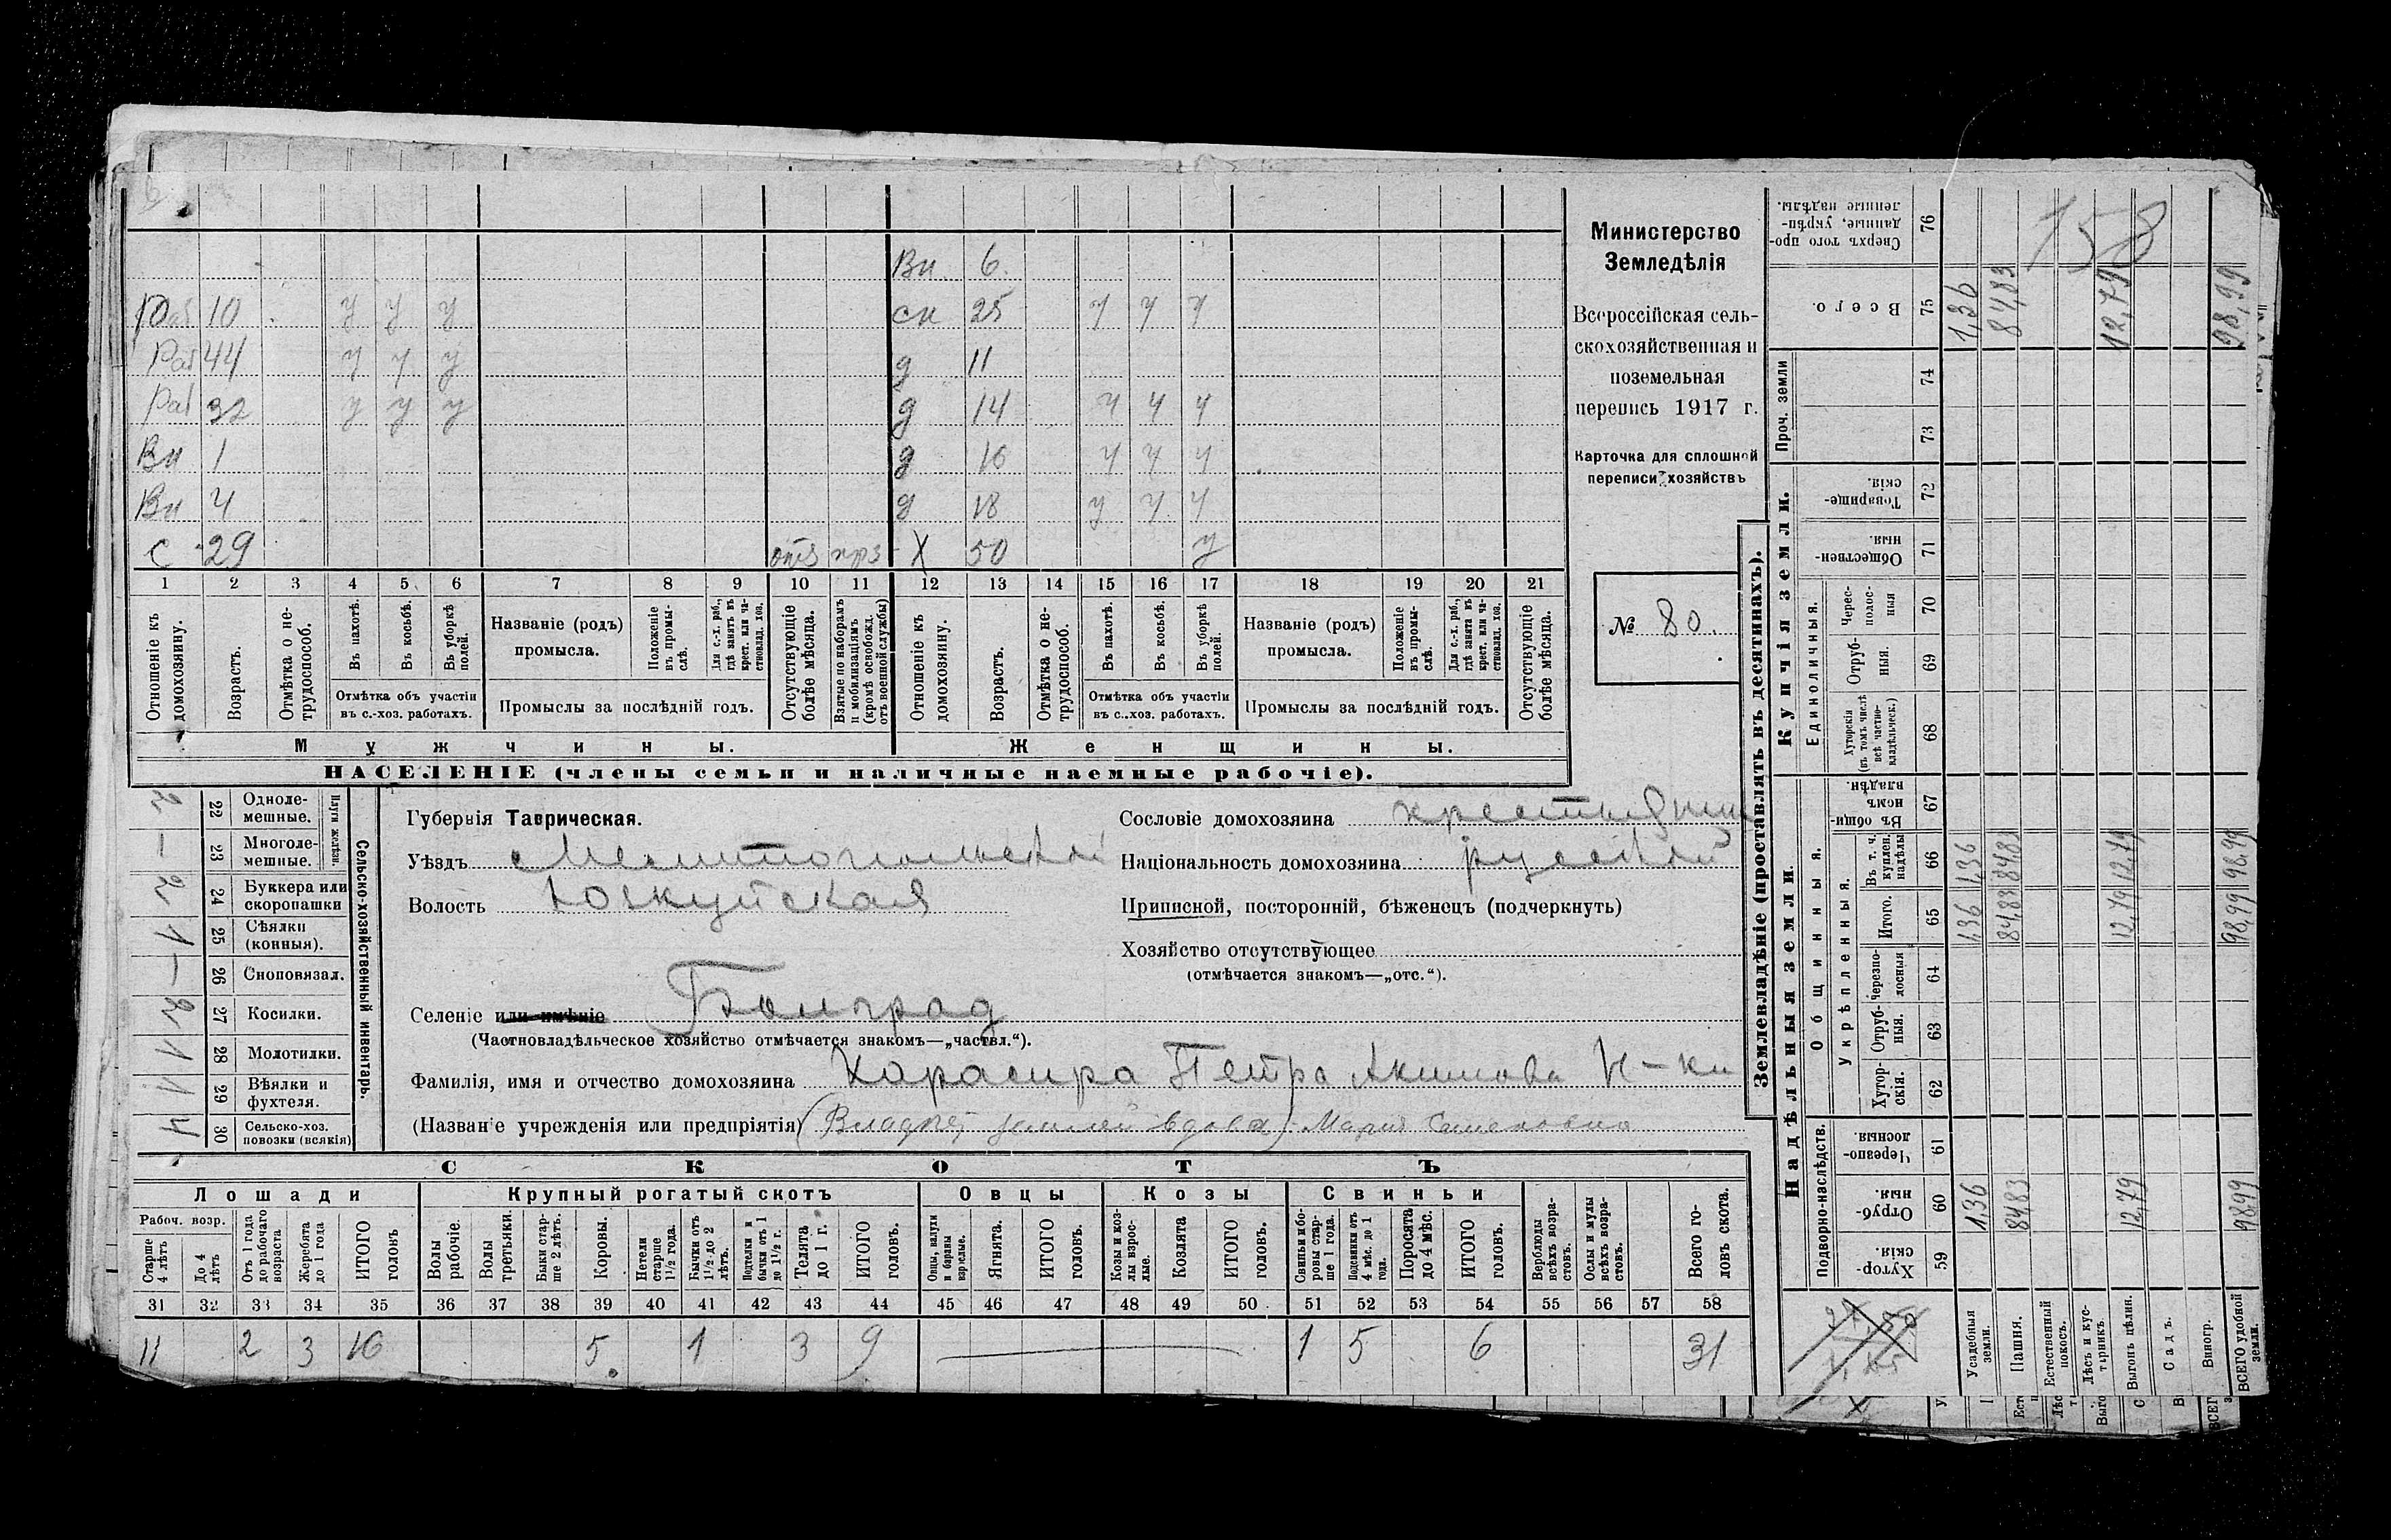 158
Вн 6
Раб 10 у у у сн 25 у у у
Раб 44 у у у д 11
Раб 32 у у у д 14 у у у
Вн 1 д 16 у у у
Вн 4 д 18 у у у
с 29 отс прз Х 50 у
1 2 3 4 5 6 7 8 9 10 11 12 13 14 15 16 17 18 19 20 21
Отношеніе къ домохозяину.
Возрастъ.
Отмѣтка о нетрудоспособ.
Въ пахотѣ.
Въ косьбѣ.
Въ уборкѣ полей.
Отмѣтка объ участіи
въ с.-хоз. работахъ.
Названіе (родъ)
промысла.
Положеніе въ промыслѣ.
Для с.-х. раб., гдѣ занятъ въ крест. или частновлад. хоз.
Промыслы за послѣдній годъ.
Отсутствующіе болѣе мѣсяца.
Взятые по наборамъ и мобилизаціямъ (кромѣ освобожд. отъ военной службы)
Отношеніе къ домохозяину.
Возрастъ.
Отмѣтка о нетрудоспособ.
Въ пахотѣ.
Въ косьбѣ.
Въ уборкѣ полей.
Отмѣтка объ участіи
въ с.-хоз. работахъ.
Названіе (родъ)
промысла.
Положеніе въ промыслѣ.
Для с.-х. раб., гдѣ занята въ крест. или частновлад. хоз.
Промыслы за послѣдній годъ.
Отсутствующіе болѣе мѣсяца.
Мужчины. Женщины.
НАСЕЛЕНІЕ (члены семьи и наличные наемные рабочіе).
Министерство
Земледѣлія
Всероссійская сель-
скохозяйственная и
поземельная
перепись 1917 г.
Карточка для сплошной
переписи хозяйствъ
№ 80.
Сельско-хозяйственный инвентарь.
Плуги желѣзн.
2 22 Одноле-
мешные.
— 23 Многоле-
мешные.
2 24 Буккера или
скоропашки
1 25 Сѣялки
(конныя).
— 26 Сноповязал.
2 27 Косилки.
1 28 Молотилки.
1 29 Вѣялки и
фухтеля.
4 30 Сельско-хоз.
повозки (всякія)
Губернія Таврическая.
Уѣздъ Мелитопольскій
Волость Юзкуйская
Селеніе или имѣніе Болград
(Частновладѣльческое хозяйство отмѣчается знакомъ—„частвл.“).
Фамилія, имя и отчество домохозяина Карасира Петра Акимова Н-ки
(Названіе учрежденія или предпріятія) (Владѣет землей вдова) Марія Семеновна
Сословіе домохозяина крестьянин
Національность домохозяина русскій
Приписной, посторонній, бѣженецъ (подчеркнуть)
Хозяйство отсутствующее
(отмѣчается знакомъ—„отс.“).
СКОТЪ
Лошади Крупный рогатый скотъ Овцы Козы Свиньи
Рабоч. возр.
Старше 4 лѣтъ
До 4 лѣтъ
Отъ 1 года до рабочаго возраста
Жеребята до 1 года
ИТОГО головъ
Волы рабочіе.
Волы третьяки.
Быки старше 2 лѣтъ.
Коровы.
Нетели старше 1½ года.
Бычки отъ 1½ до 2 лѣтъ.
Подтелки и бычки отъ 1 до 1½ г.
Телята до 1 г.
ИТОГО головъ.
Овцы, валухи и бараны взрослые.
Ягнята.
ИТОГО головъ.
Козы и козлы взрослые.
Козлята
ИТОГО головъ.
Свиньи и боровы старше 1 года.
Подсвинки отъ 4 мѣс. до 1 года.
Поросята до 4 мѣс.
ИТОГО головъ.
Верблюды всѣхъ возрастовъ.
Ослы и мулы всѣхъ возрастовъ.
Всего головъ скота.
31 32 33 34 35 36 37 38 39 40 41 42 43 44 45 46 47 48 49 50 51 52 53 54 55 56 57 58
11 2 3 16 5 1 3 9 — 1 5 6 31
Землевладѣніе (проставлять въ десятинахъ).
Надѣльныя земли. Купчія земли. Проч. земли
Подворно-наслѣдств.
Общинныя.
Укрѣпленныя.
Единоличныя.
76 Сверхъ того проданные, укрѣпленные надѣлы.
75 Всего. 1,36 84,83 12,79 98,99
74
73
72 Товарищескія.
71 Общественныя.
70 Чересполосныя
69 Отрубныя.
68 Хуторскія (въ томъ числѣ всѣ частновладѣльческ.)
67 Въ общинномъ владѣн.
66 Въ т. ч. куплен. надѣлы 1,36 84,83 12,79 98,99
65 Итого. 1,36 84,83 12,79 98,99
64 Черезполосныя
63 Отрубныя.
62 Хуторскія.
61 Черезполосныя.
60 Отрубныя. 1,36 84,83 12,79 98,99
59 Хуторскія.
Усадебныя земли.
Пашня.
Естественный покосъ.
Лѣсъ и кустарникъ.
Выгонъ цѣлин.
Садъ.
Виногр.
ВСЕГО удобной земли.